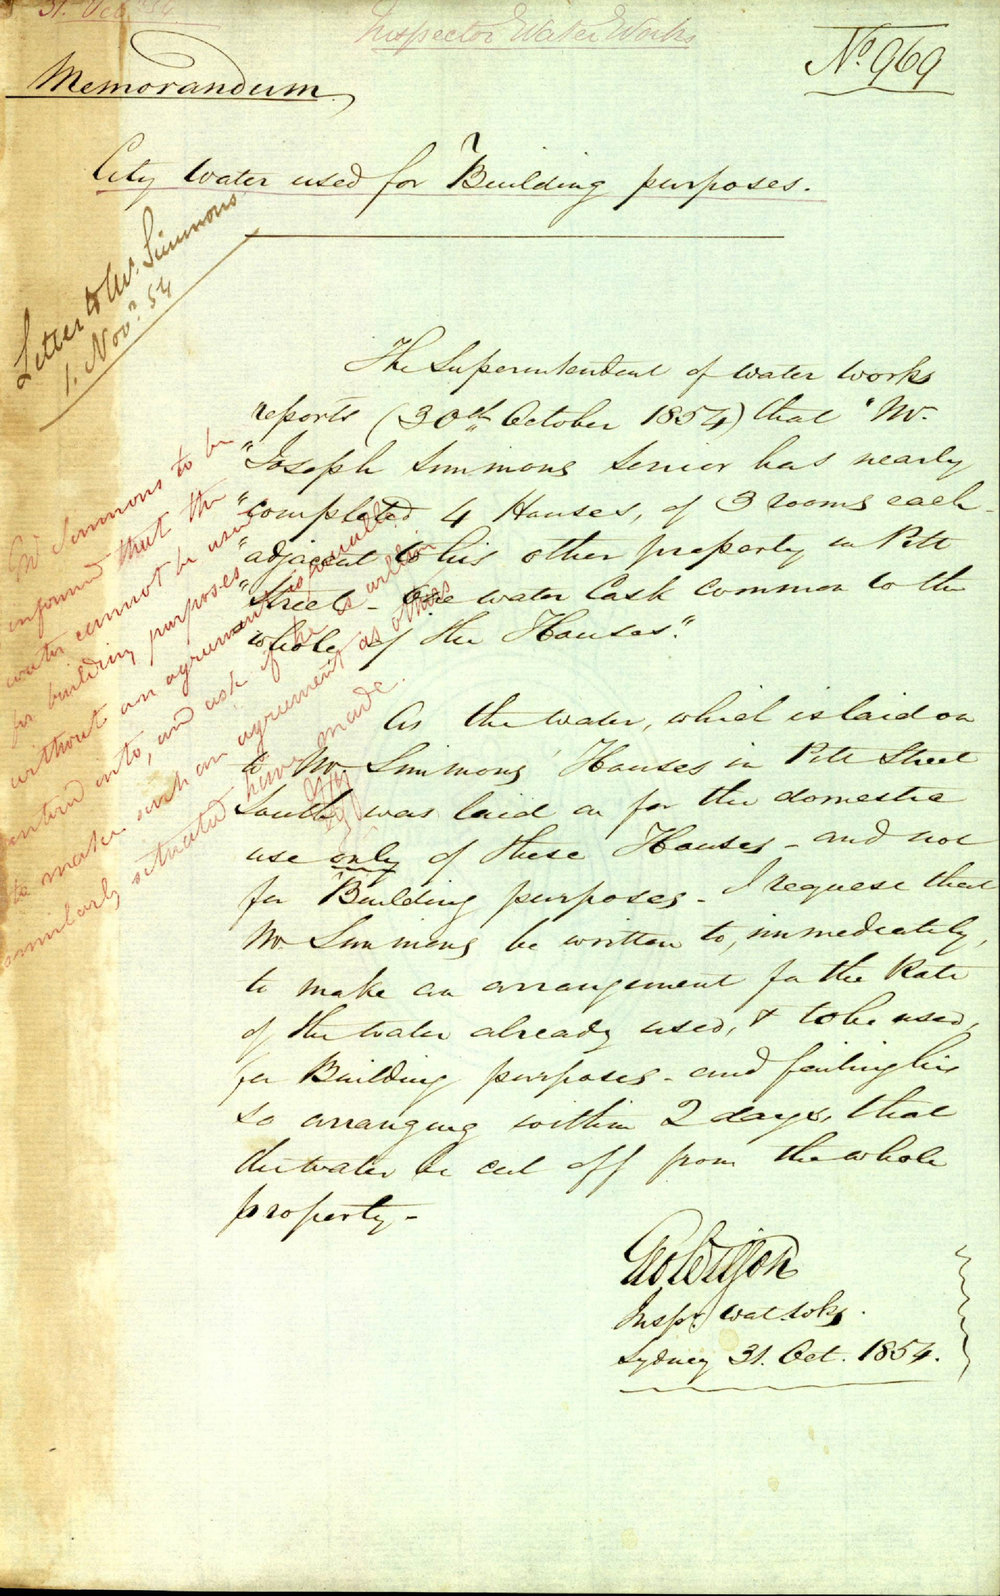 31. Oct. 54
Inspector Water Works
No. 969
Memorandum
City Water used for Building purposes.
Letter to Mr. Simmons
1. Novr. 54
The Superintendent of Water Works
reports (30th October 1854) that "Mr.
"Joseph Simmons Senior has nearly
"completed 4 Houses, of 3 rooms each
"adjacent to his other property in Pitt
"Street - One water Cask common to the
whole of the Houses."
Mr Simmons to be
informed that the
water cannot be used
for building purposes
without an agreement is
entered into, and ask if he is willing
to make such an agreement as others
similarly situated have made.
As the Water, which is laid on
to Mr Simmons' Houses in Pitt Street
South, was laid on for the domestic
use only of these Houses - and not
for Building purposes - I request that
Mr Simmons be written to, immediately,
to make an arrangement for the Rate
of the water already used, & to be used,
for Building purposes - and failing his
so arranging within 2 days, that
the water be cut off from the whole
property -
Inspr. Wat. Wks.
Sydney 31. Oct. 1854.